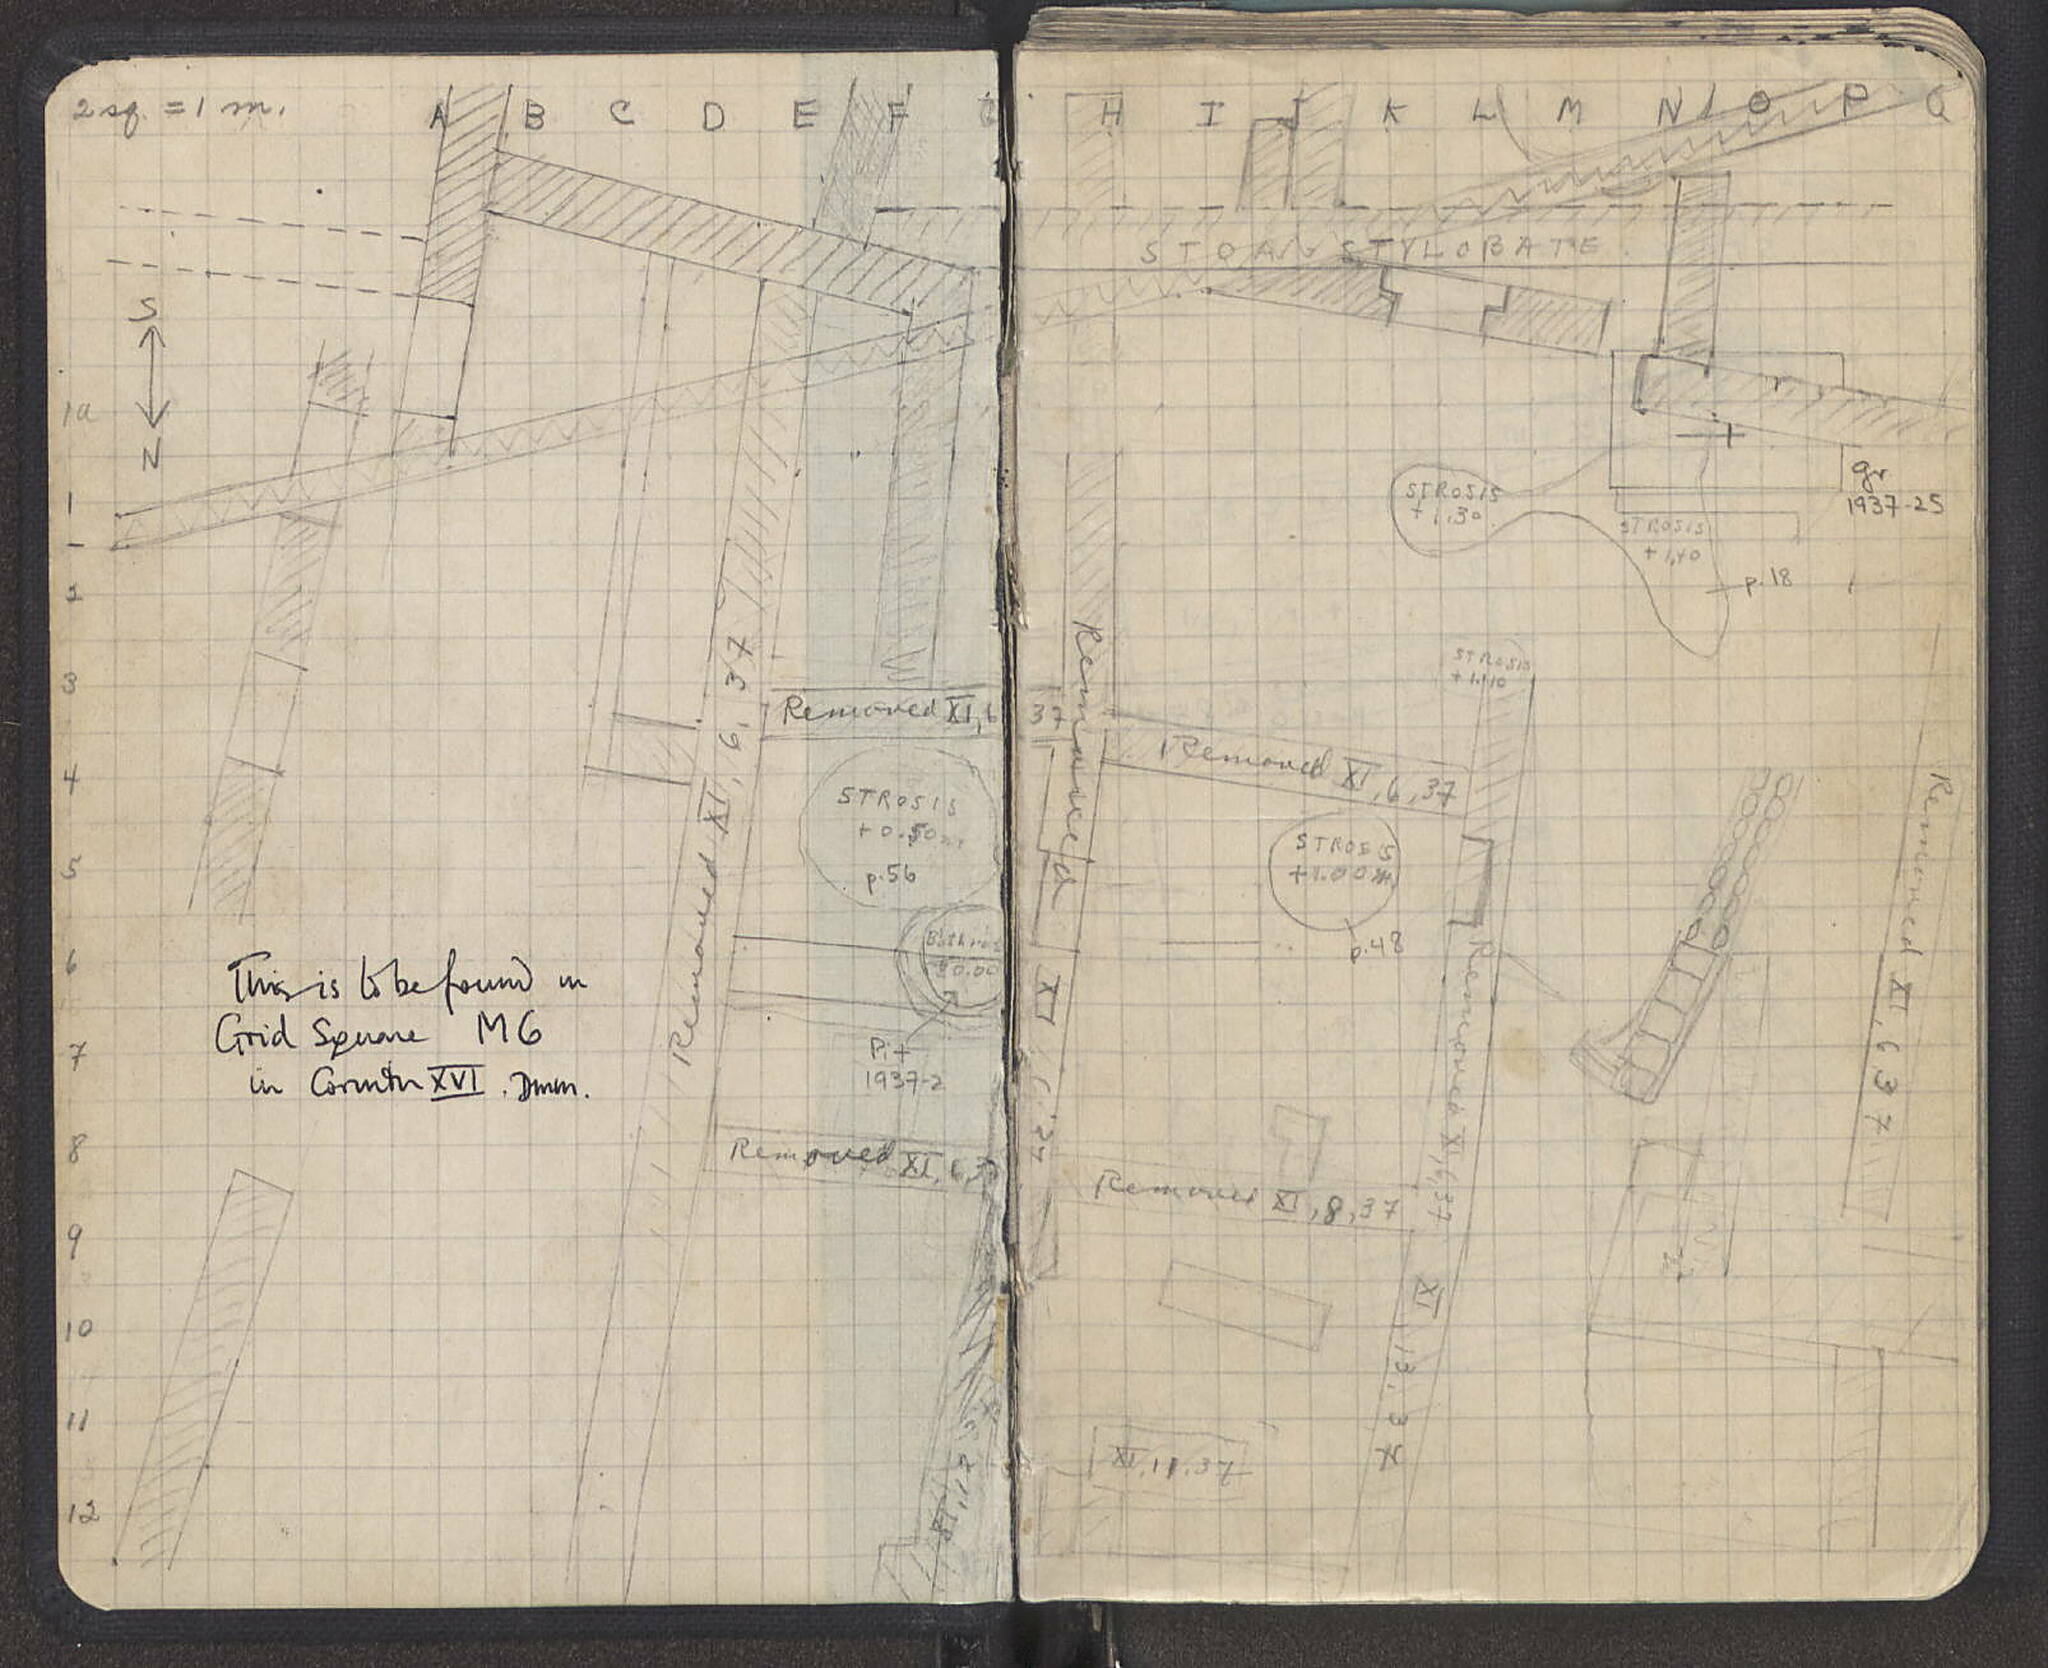 2 sq. = 1 m.
A B C D E F G H I J K L M N O P Q
STOA STYLOBATE
S
N
1a
1
2
3
4
5
6
7
8
9
10
11
12
STROSIS
+1.30
gr
1937-25
STROSIS
+1.40
p.18
STROSIS
+1.10
Removed XI, 6, 37
Removed XI, 6, 37
Removed XI, 6, 37
Removed XI, 6, 37
STROSIS
+0.50m
p.56
STROSIS
+1.00m
p.48
Bothros
±0.00
Pit
1937-2
This is to be found in
Grid Square M6
in Corinth XVI. Dmm.
Removed XI, 6, 37
Removed XI, 6, 37
Removed XI, 6, 37
Removed XI, 8, 37
XI, 13, 37
XI, 11, 37